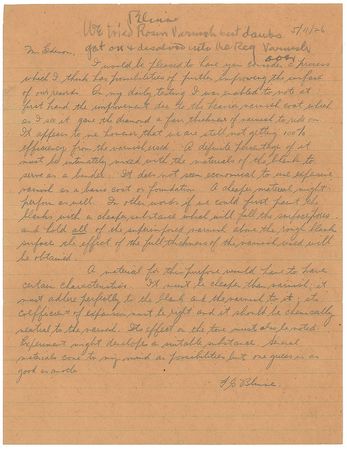 We tried Rosin Varnish but
got on & dissolved into the Reg Varnish
5/11/26
Mr Edison,
I would be pleased to have you consider a process
which I think has possibilities of further improving the surface
of our records. In my daily testing I was enabled to note at
first hand the improvement due to the heavier varnish coat which
as I see it gave the diamond a fair thickness of varnish to ride on.
It appears to me however that we are still not getting 100%
efficiency from the varnish used. A definite percentage of it
must be intimately mixed with the materials of the blank to
serve as a binder. It does not seem economical to use expensive
varnish as a basic coat or foundation. A cheaper material might
perform as well. In other words if we could first paint the
blanks with a cheaper substance which will fill the surface pores
and hold all of the superimposed varnish above the rough blank
surface the effect of the full thickness of the varnish used will
be obtained.
A material for this purpose would have to have
certain characteristics. It must be cheaper than varnish; it
must adhere perfectly to the blank and the varnish to it; its
coefficient of expansion must be right and it should be chemically
neutral to the varnish. Its effect on the tone must also be noted.
Experiment might develope a suitable substance. Several
materials come to my mind as possibilities but one guess is as
good as another.